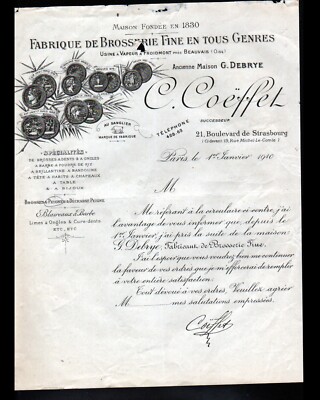 MAISON FONDÉE EN 1830
FABRIQUE DE BROSSERIE FINE EN TOUS GENRES
USINE À VAPEUR À FROIDMONT PRÈS BEAUVAIS (Oise)
ANCIENNE MAISON G. DEBRYE
C. Coëffet
SUCCESSEUR
AU SANGLIER
MARQUE DE FABRIQUE
TÉLÉPHONE
21, Boulevard de Strasbourg
Paris le 1er Janvier 1910
SPÉCIALITÉS
DE BROSSES À DENTS & À ONGLES
À BARBE À POUDRE DE RIZ
À TÊTE À HABITS À CHAPEAUX
À TABLE
& À BIJOUX
Blaireaux à Barbe
Limes à Ongles & Cure-dents
ETC., ETC.
M
Me référant à la circulaire ci-contre, j'ai
l'avantage de vous informer que, depuis le
1er Janvier, j'ai pris la suite de la maison
G. Debrye, Fabricant de Brosserie Fine.
J'ai l'espoir que vous voudrez bien me continuer
la faveur de vos ordres que je m'efforcerai de remplir
à votre entière satisfaction.
Tout dévoué à vos ordres, Veuillez agréer
M mes salutations empressées.
Coëffet